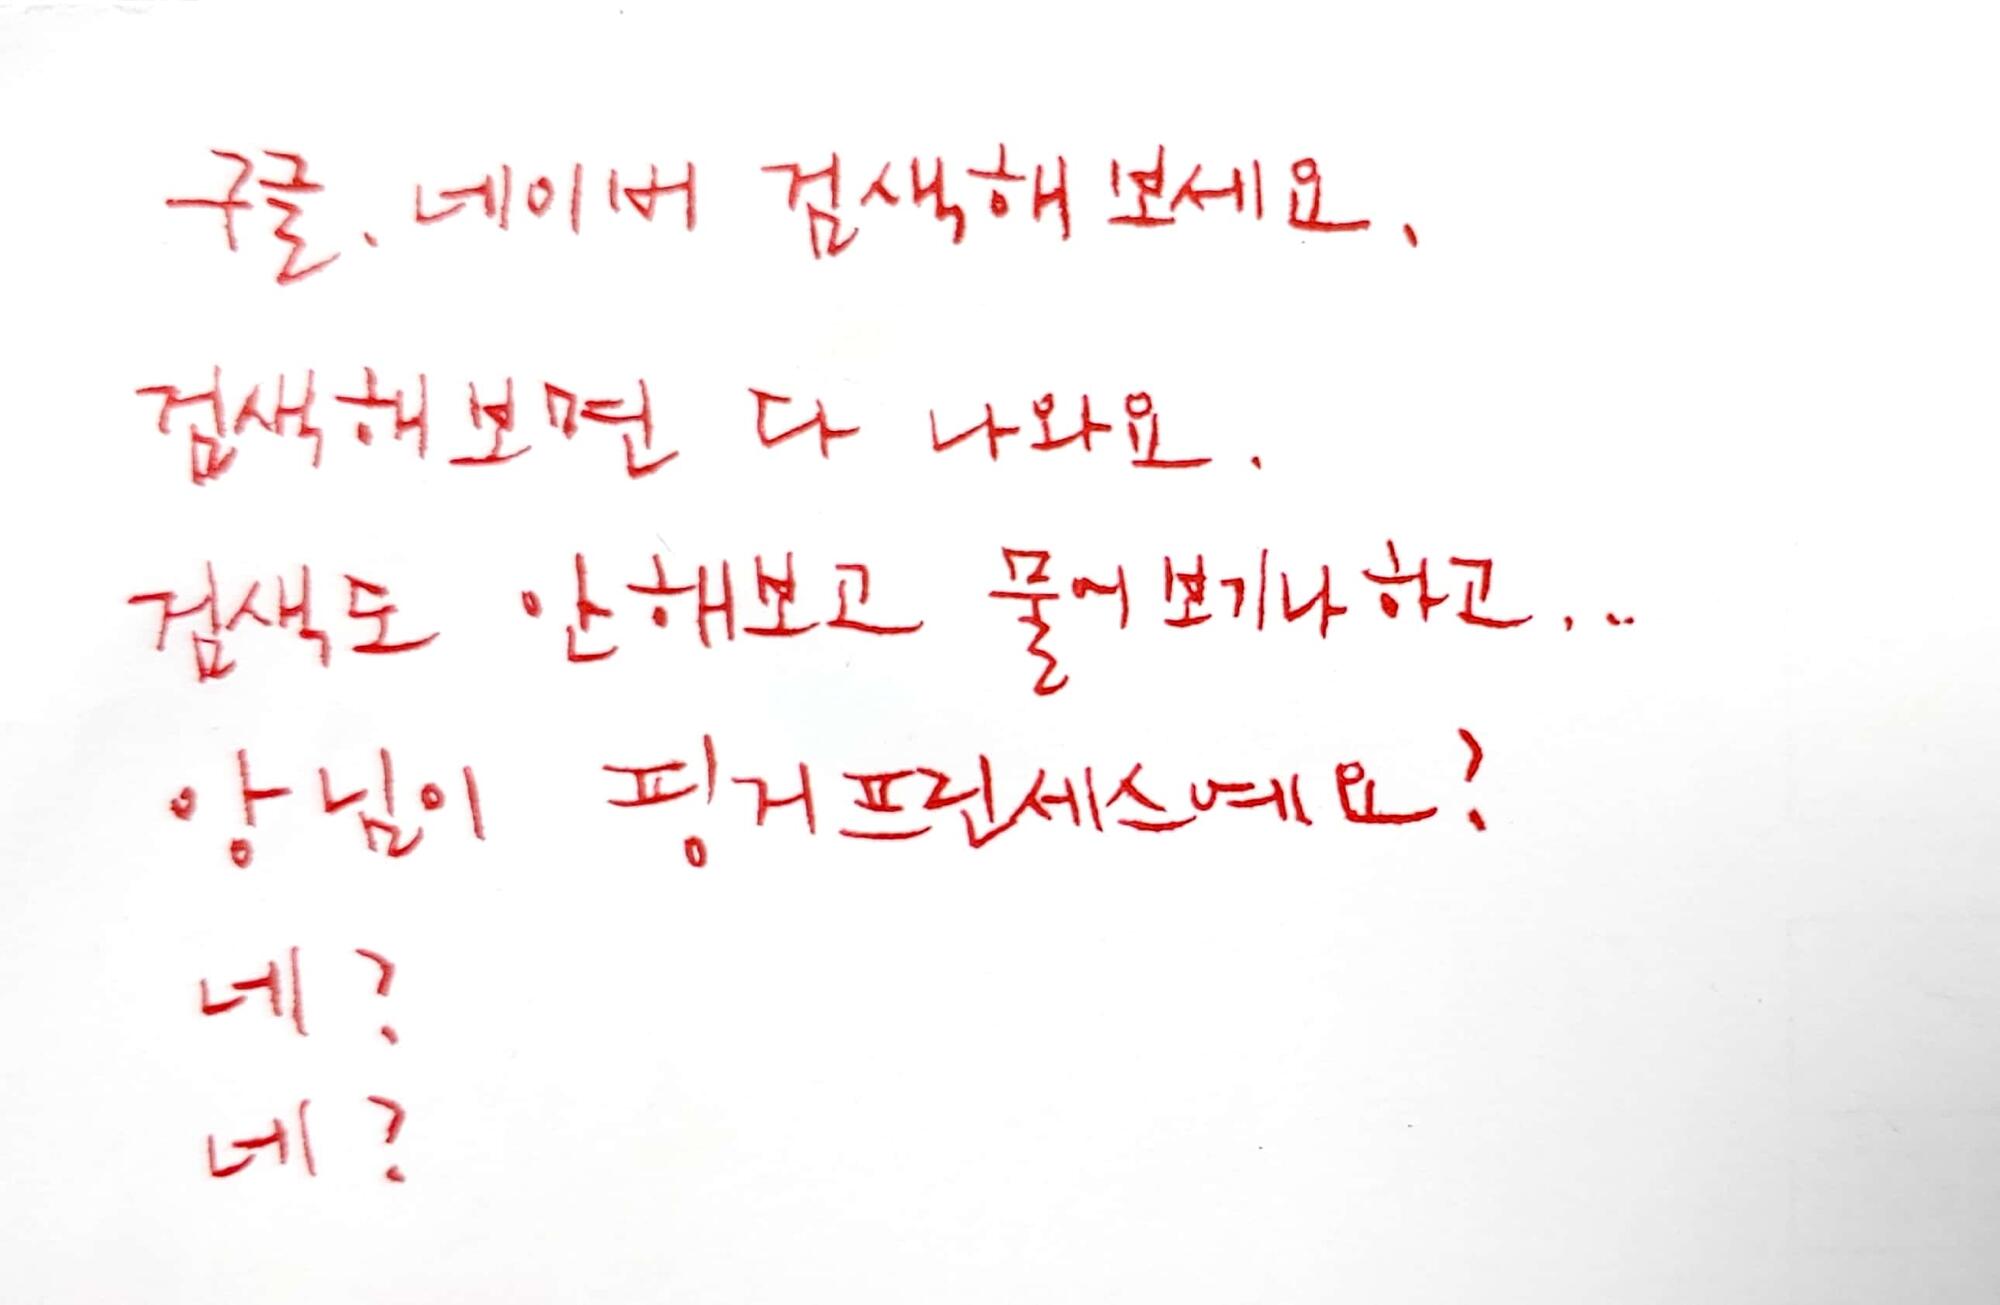 구글, 네이버 검색해보세요.
검색해보면 다 나와요.
검색도 안해보고 물어보기나하고...
양님이 핑거프린세스예요?
네?
네?